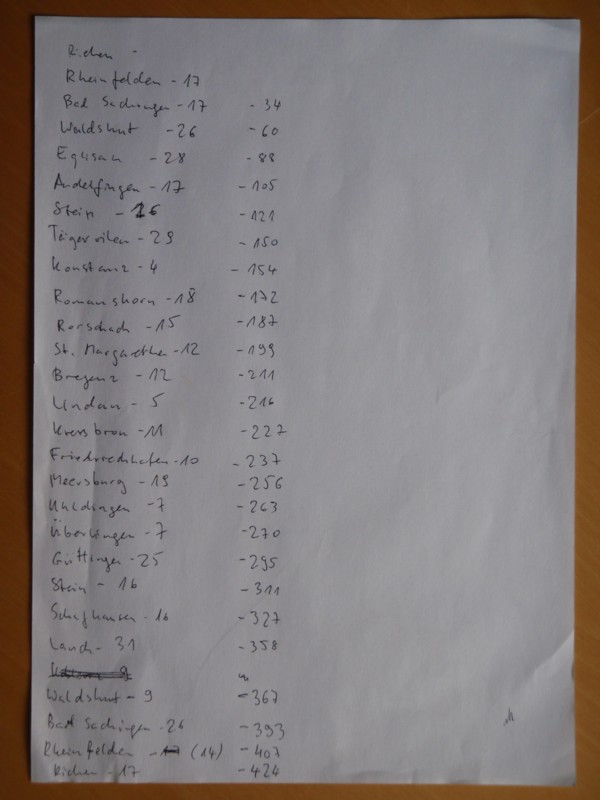 Riehen -
Rheinfelden - 17
Bad Säckingen - 17 - 34
Waldshut - 26 - 60
Eglisau - 28 - 88
Andelfingen - 17 - 105
Stein - 16 - 121
Tägerwilen - 29 - 150
Konstanz - 4 - 154
Romanshorn - 18 - 172
Rorschach - 15 - 187
St. Margarethen - 12 - 199
Bregenz - 12 - 211
Lindau - 5 - 216
Kressbron - 11 - 227
Friedrichshafen - 10 - 237
Meersburg - 19 - 256
Uhldingen - 7 - 263
Überlingen - 7 - 270
Güttingen - 25 - 295
Stein - 16 - 311
Schafhausen - 16 - 327
Lauch - 31 - 358
Waldshut - 9 - 367
Bad Sackingen - 26 - 393
Rheinfelden - 17 (14) - 407
Riehen - 17 - 424